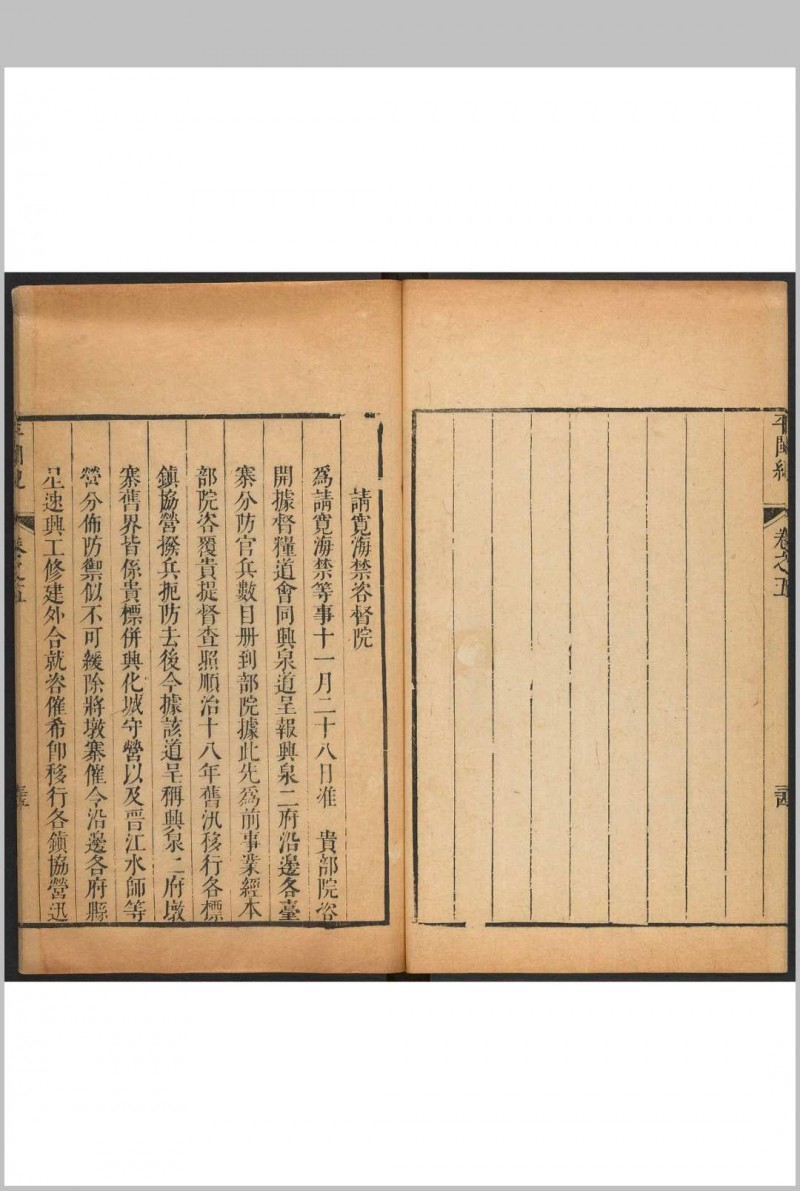 平閩紀
卷之五
請寬海禁咨督院
爲請寬海禁等事十一月二十八日准　貴部院咨
開據督糧道會同興泉道呈報興泉二府沿邊各臺
寨分防官兵數目册到部院據此先爲前事業經本
部院咨覆貴提督查照順治十八年舊汛移行各標
鎮協營撥兵扼防去後今據該道呈稱興泉二府墩
寨舊界皆係貴標併興化城守營以及晋江水師等
營分佈防禦似不可緩除將墩寨催令沿邊各府縣
星速興工修建外合就咨催希卽移行各鎮協營迅
卷之五